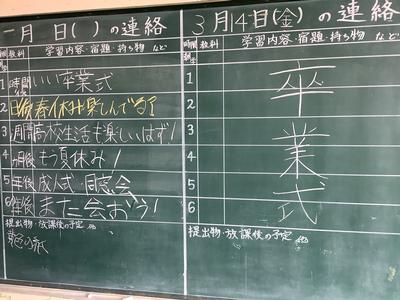 一月 日( )の連絡
時間 教科 学習内容・宿題・持ち物 など
1 時間 いい卒業式
2 日後 春休み楽しんでる?
3 週間高校生活も楽しいはず!
4 か月後もう夏休み!
5 年後 成人式・同窓会
6 年後 また会おう!
提出物・放課後の予定 他
3月14日(金)の連絡
時間 教科 学習内容・宿題・持ち物 など
1
2
3
4
5
6
卒業式
提出物・放課後の予定 他